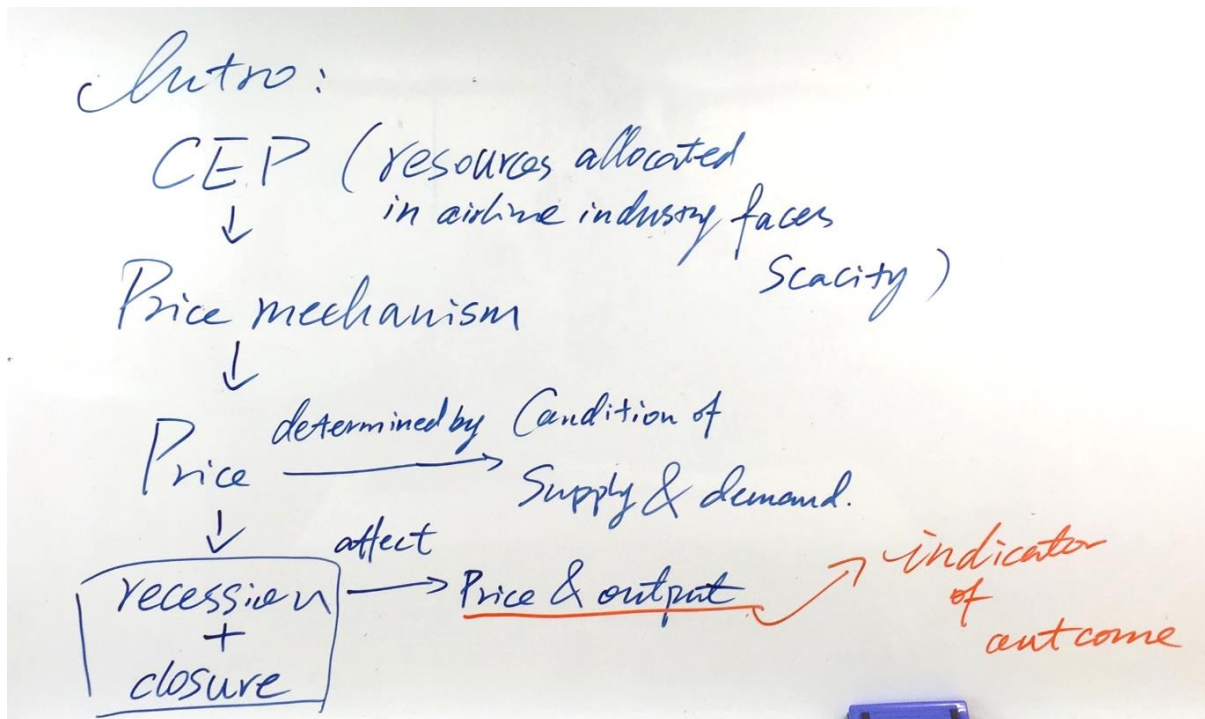 Intro:
CEP (resources allocated
in airline industry faces
Scacity)
↓
Price mechanism
↓
Price determined by → Condition of
Supply & demand.
↓
recession affect → Price & output → indicator
+ of
closure outcome